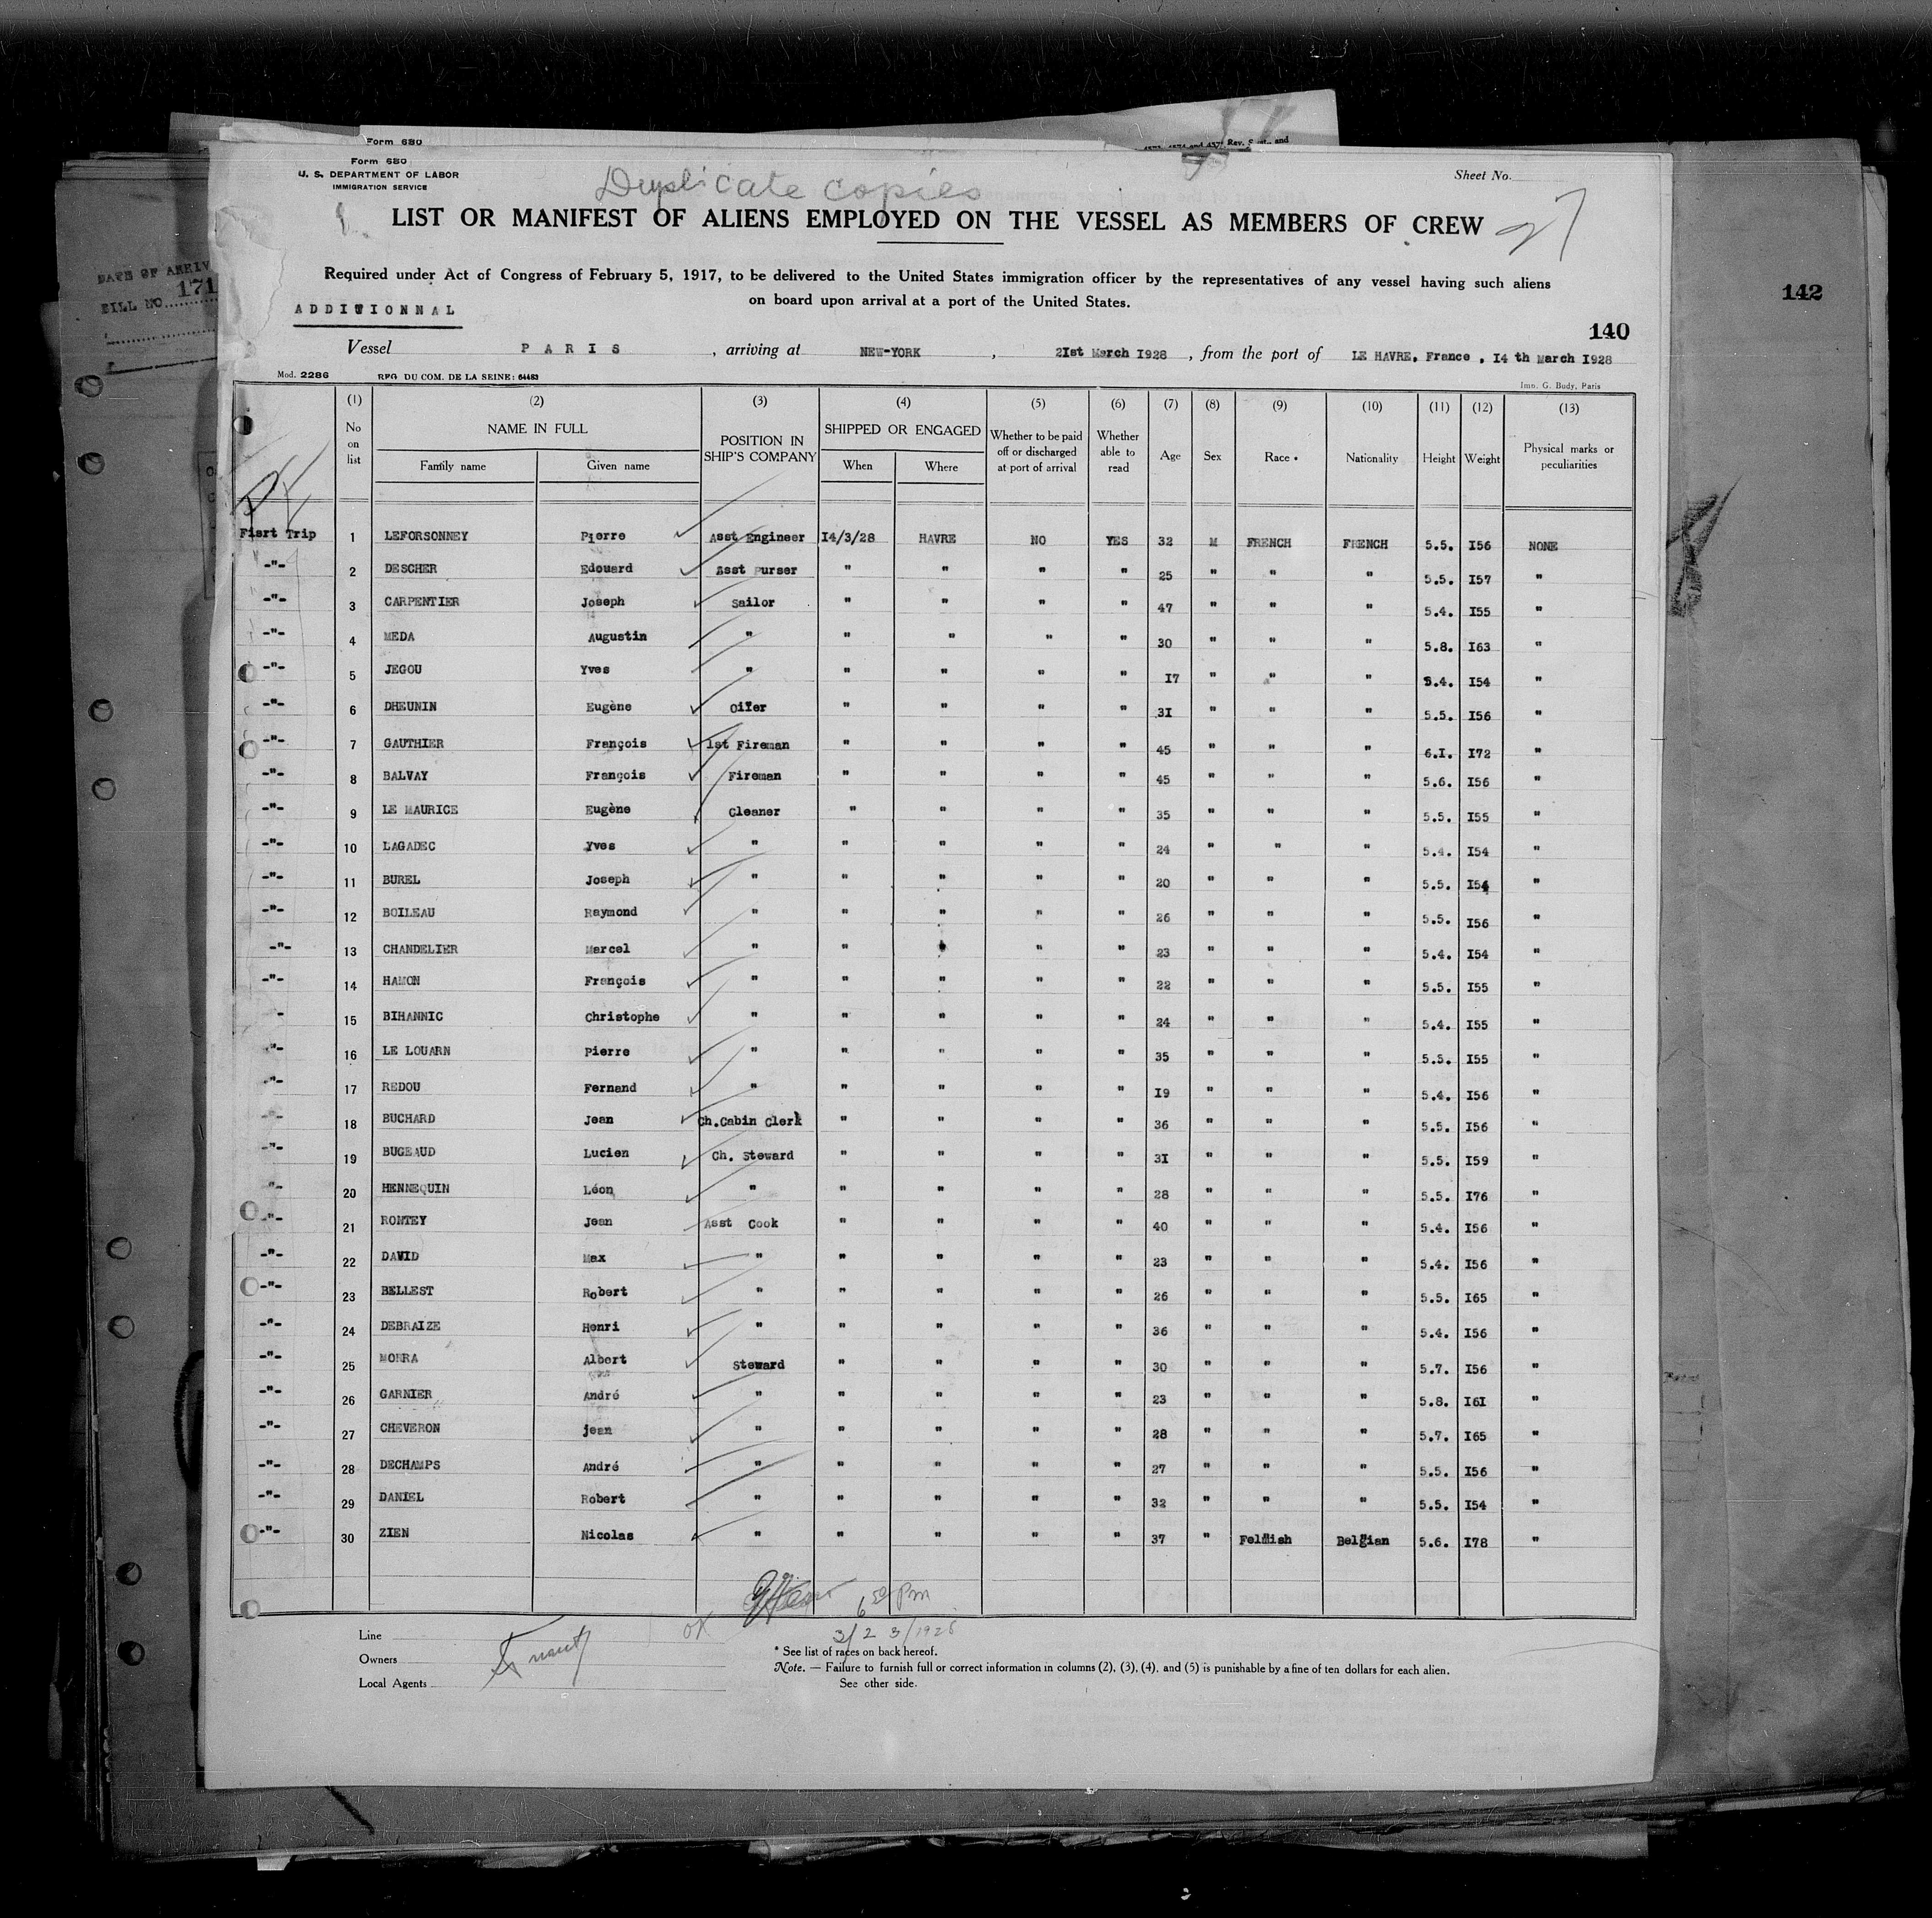 Form 680
Form 680
U. S. DEPARTMENT OF LABOR
IMMIGRATION SERVICE
Duplicate copies
Sheet No.
27
LIST OR MANIFEST OF ALIENS EMPLOYED ON THE VESSEL AS MEMBERS OF CREW
Required under Act of Congress of February 5, 1917, to be delivered to the United States immigration officer by the representatives of any vessel having such aliens
on board upon arrival at a port of the United States.
BILL NO. 171
142
ADDITIONNAL
140
Vessel PARIS , arriving at NEW-YORK , 2Ist March I928 , from the port of LE HAVRE, France , I4 th March I928
Mod. 2286 RPG DU COM. DE LA SEINE: 64483 Imp. G. Budy, Paris
(1) (2) (3) (4) (5) (6) (7) (8) (9) (10) (11) (12) (13)
No on list NAME IN FULL Family name Given name POSITION IN SHIP'S COMPANY SHIPPED OR ENGAGED When Where Whether to be paid off or discharged at port of arrival Whether able to read Age Sex Race * Nationality Height Weight Physical marks or peculiarities
Fisrt Trip 1 LEFORSONNEY Pierre Asst Engineer I4/3/28 HAVRE NO YES 32 M FRENCH FRENCH 5.5. I56 NONE
-"- 2 DESCHER Edouard Asst Purser " " " " 25 " " " 5.5. I57 "
-"- 3 CARPENTIER Joseph Sailor " " " " 47 " " " 5.4. I55 "
-"- 4 MEDA Augustin " " " " " 30 " " " 5.8. I63 "
-"- 5 JEGOU Yves " " " " " I7 " " " 5.4. I54 "
-"- 6 DHEUNIN Eugène Oiler " " " " 3I " " " 5.5. I56 "
-"- 7 GAUTHIER François 1st Fireman " " " " 45 " " " 6.I. I72 "
-"- 8 BALVAY François Fireman " " " " 45 " " " 5.6. I56 "
-"- 9 LE MAURICE Eugène Cleaner " " " " 35 " " " 5.5. I55 "
-"- 10 LAGADEC Yves " " " " " 24 " " " 5.4. I54 "
-"- 11 BUREL Joseph " " " " " 20 " " " 5.5. I54 "
-"- 12 BOILEAU Raymond " " " " " 26 " " " 5.5. I56 "
-"- 13 CHANDELIER Marcel " " " " " 23 " " " 5.4. I54 "
-"- 14 HAMON François " " " " " 22 " " " 5.5. I55 "
" 15 BIHANNIC Christophe " " " " " 24 " " " 5.4. I55 "
-"- 16 LE LOUARN Pierre " " " " " 35 " " " 5.5. I55 "
-"- 17 REDOU Fernand " " " " " I9 " " " 5.4. I56 "
-"- 18 BUCHARD Jean Ch.Cabin Clerk " " " " 36 " " " 5.5. I56 "
-"- 19 BUGEAUD Lucien Ch. Steward " " " " 3I " " " 5.5. I59 "
"- 20 HENNEQUIN Léon " " " " " 28 " " " 5.5. I76 "
-"- 21 ROMTEY Jean Asst Cook " " " " 40 " " " 5.4. I56 "
-"- 22 DAVID Max " " " " " 23 " " " 5.4. I56 "
-"- 23 BELLEST Robert " " " " " 26 " " " 5.5. I65 "
-"- 24 DEBRAIZE Henri " " " " " 36 " " " 5.4. I56 "
-"- 25 MORRA Albert Steward " " " " 30 " " " 5.7. I56 "
-"- 26 GARNIER André " " " " " 23 " " " 5.8. I6I "
-"- 27 CHEVERON jean " " " " " 28 " " " 5.7. I65 "
-"- 28 DECHAMPS André " " " " " 27 " " " 5.5. I56 "
-"- 29 DANIEL Robert " " " " " 32 " " " 5.5. I54 "
-"- 30 ZIEN Nicolas " " " " " 37 " Felmish Belgian 5.6. I78 "
OK
3/23/1928
Line
Owners
Local Agents
* See list of races on back hereof.
Note. — Failure to furnish full or correct information in columns (2), (3), (4), and (5) is punishable by a fine of ten dollars for each alien.
See other side.